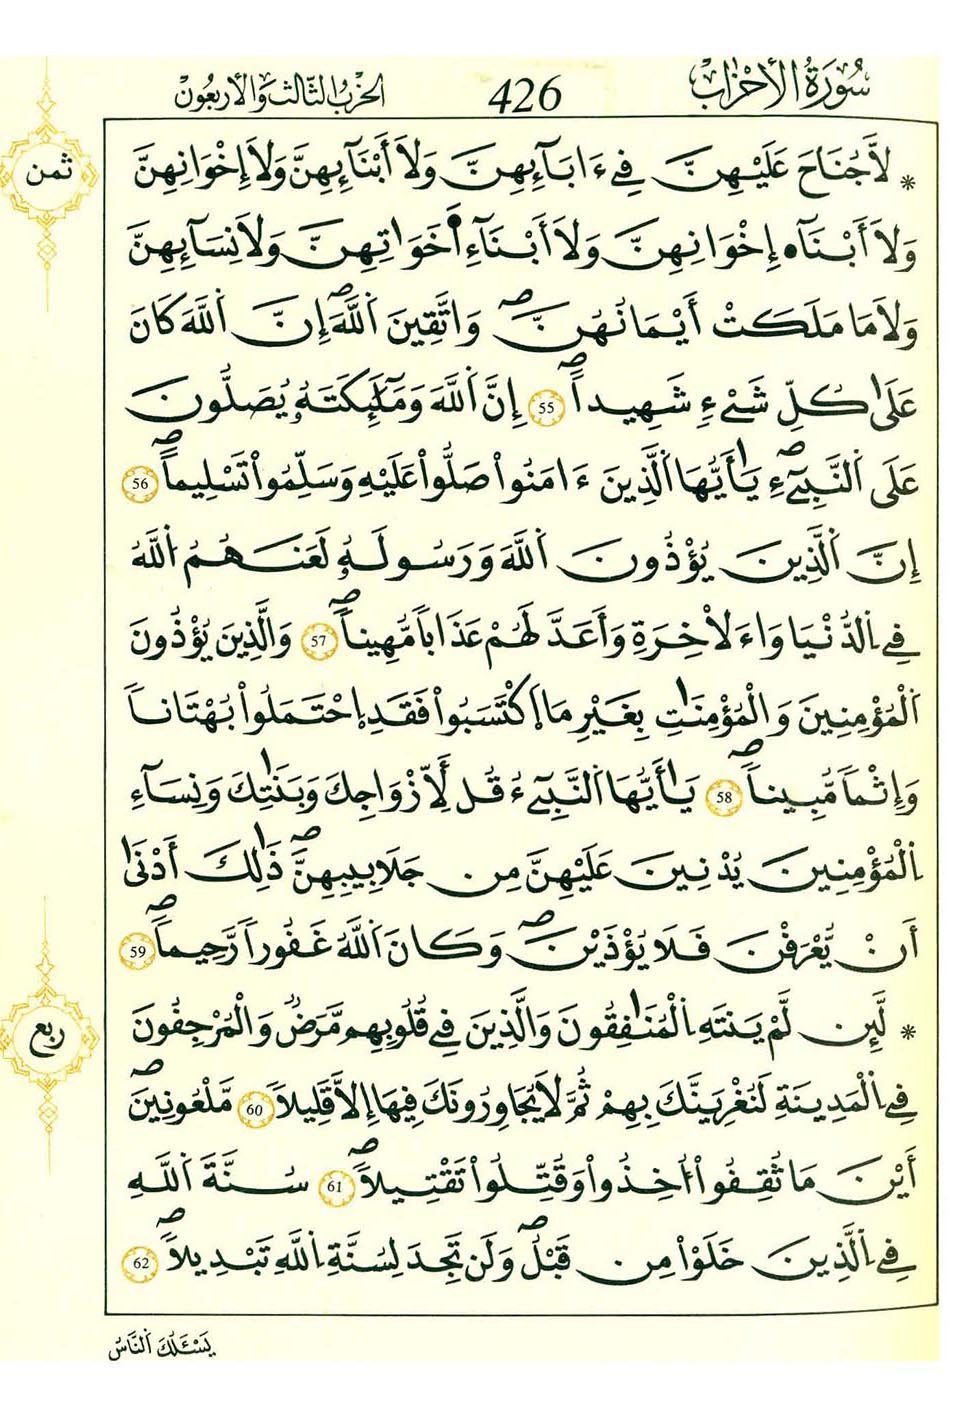 سُورَةُ الأَحْزَابِ 426 الحِزْبُ الثَّالِثُ وَالأَرْبَعُونَ
ثمن
* لاَّ جُنَاحَ عَلَيْهِنَّ فِےٓ ءَابَآئِهِنَّ وَلَآ أَبْنَآئِهِنَّ وَلَآ إِخْوَانِهِنَّ
وَلَآ أَبْنَآءِ إِخْوَانِهِنَّ وَلَآ أَبْنَآءِ اَخَوَاتِهِنَّ وَلاَ نِسَآئِهِنَّ
وَلاَ مَا مَلَكَتْ أَيْمَانُهُنَّۖ وَاتَّقِينَ اَللَّهَۖ إِنَّ اَللَّهَ كَانَ
عَلَىٰ كُلِّ شَےْءٖ شَهِيداًۖ 55 إِنَّ اَللَّهَ وَمَلَٰٓئِكَتَهُۥ يُصَلُّونَ
عَلَى اَلنَّبِےٓءِۖ يَٰٓأَيُّهَا اَلذِينَ ءَامَنُواْ صَلُّواْ عَلَيْهِ وَسَلِّمُواْ تَسْلِيماًۖ 56
إِنَّ اَلذِينَ يُؤْذُونَ اَللَّهَ وَرَسُولَهُۥ لَعَنَهُمُ اُللَّهُ
فِے اِلدُّنْيَا وَاءَلاْخِرَةِ وَأَعَدَّ لَهُمْ عَذَاباٗ مُّهِيناٗۖ 57 وَالذِينَ يُؤْذُونَ
اَلْمُؤْمِنِينَ وَالْمُؤْمِنَٰتِ بِغَيْرِ مَا اَكْتَسَبُواْ فَقَدِ اِحْتَمَلُواْ بُهْتَاناٗ
وَإِثْماٗ مُّبِيناٗۖ 58 يَٰٓأَيُّهَا اَلنَّبِےٓءُ قُل لِّأَزْوَاجِكَ وَبَنَٰتِكَ وَنِسَآءِ
اِلْمُؤْمِنِينَ يُدْنِينَ عَلَيْهِنَّ مِن جَلَابِيبِهِنَّۖ ذَٰلِكَ أَدْنَىٰٓ
أَنْ يُّعْرَفْنَ فَلَا يُؤْذَيْنَۖ وَكَانَ اَللَّهُ غَفُوراٗ رَّحِيماٗۖ 59
ربع
* لَّئِن لَّمْ يَنتَهِ اِلْمُنَٰفِقُونَ وَالذِينَ فِے قُلُوبِهِم مَّرَضٌ وَالْمُرْجِفُونَ
فِے اِلْمَدِينَةِ لَنُغْرِيَنَّكَ بِهِمْ ثُمَّ لَا يُجَاوِرُونَكَ فِيهَآ إِلاَّ قَلِيلاٗ 60 مَّلْعُونِينَۖ
أَيْنَ مَا ثُقِفُوٓاْ أُخِذُواْ وَقُتِّلُواْ تَقْتِيلاٗۖ 61 سُنَّةَ اَللَّهِ
فِے اِلذِينَ خَلَوْاْ مِن قَبْلُۖ وَلَن تَجِدَ لِسُنَّةِ اِللَّهِ تَبْدِيلاٗۖ 62
يَسْـَٔلُكَ اَلنَّاسُ